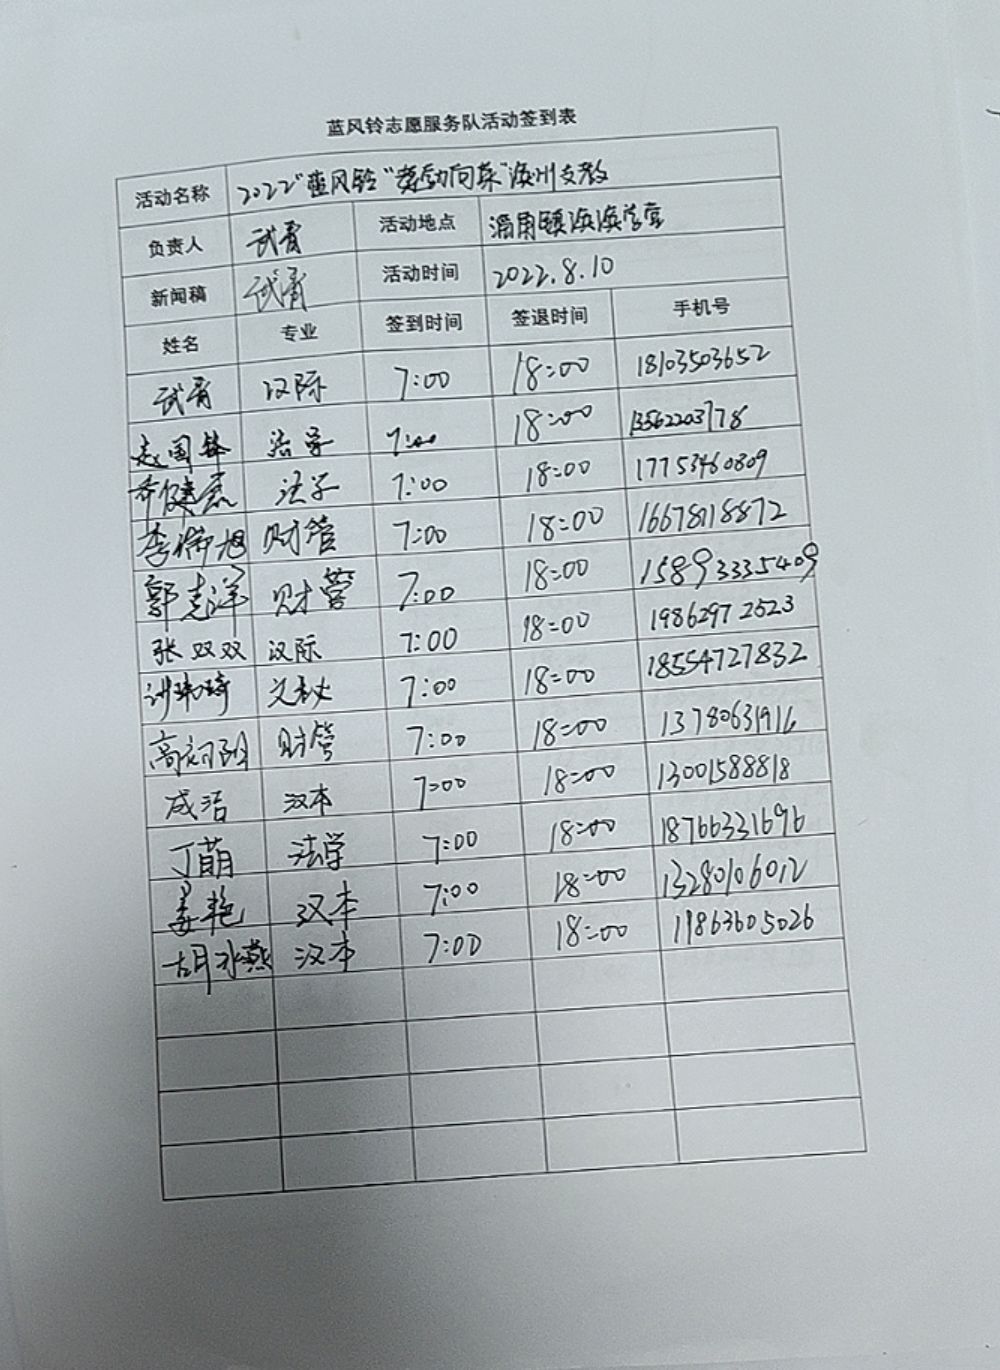 蓝风铃志愿服务队活动签到表
活动名称 2022"蓝风铃" 滨州支教
负责人 武青 活动地点
新闻稿 武青 活动时间 2022.8.10
姓名 专业 签到时间 签退时间 手机号
武青 汉际 7:00 18:00 18103503652
赵国 法学 7:00 18:00 13562203778
乔健 法学 7:00 18:00 17753460809
李 旭 财管 7:00 18:00 16678118872
郭志洋 财管 7:00 18:00 15893335409
张双双 汉际 7:00 18:00 19862972523
许玮琦 文秘 7:00 18:00 18554727832
高 阳 财管 7:00 18:00 13780631916
成洁 汉本 7:00 18:00 13001588818
丁萌 法学 7:00 18:00 18766331696
姜艳 汉本 7:00 18:00 13280106012
胡水燕 汉本 7:00 18:00 19863605026